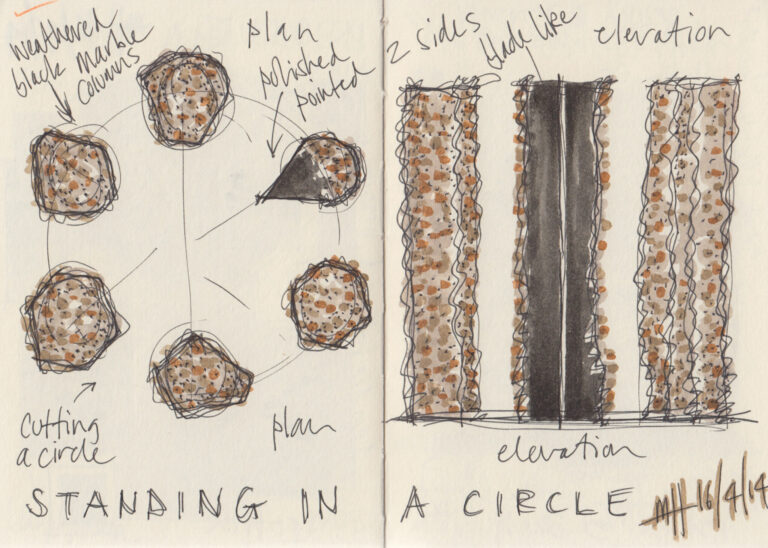 weathered
black marble
columns
plan
polished
pointed
cutting
a circle
plan
2 sides
blade like
elevation
elevation
STANDING IN A CIRCLE
MH 16/4/14